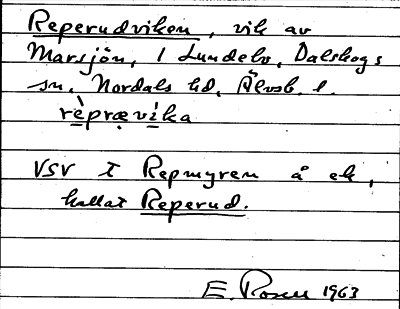 Reperudviken, vik av
Marsjön, 1 Lundebo, Dalskogs
sn, Nordals hd, Älvsb. l.
rèprævíka
VSV t Repmyren å ek,
kallat Reperud.
E. Rosen 1963